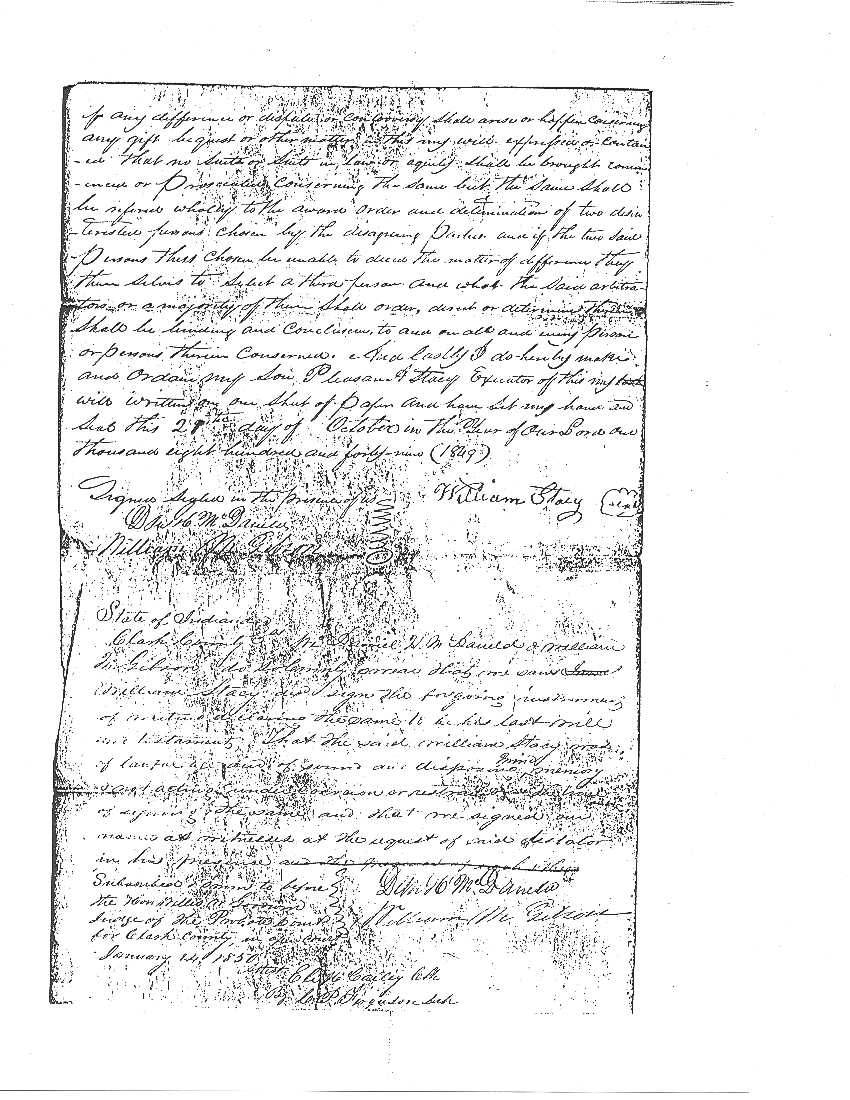 If any difference or dispute or controversy shall arise or happen conserning
any gift bequest or other matter in this my will expressed or contain
-ed that no suite or suits in law or equity shall be brought comm
-enced or Prosecuted conserning the same but the same shall
be refered wholly to the award order and determination of two disin
-terested persons chosen by the disagreing Parties and if the two said
Persons thus chosen be unable to decide the matter of difference they
them selvis to select a third person and what the said arbitra
-tors or a majority of them shall order, direct or determine
shall be binding and conclusive to and on all and every person
or persons therein conserned. And lastly I do hereby make
and ordain my Son Pleasant Stacy Executor of this my last
will written on one sheet of paper and have set my hand and
seal this day of October in the Year of Our Lord one
thousand eight hundred and forty-nine (1849)
Signed Sealed in the presence of us William Stacy seal
H McDaniel
William M Gibson
State of Indiana
Clark County We Daniel H McDaniel & William
M Gibson do solemnly swear that we saw
William Stacy sign the forgoing instrument
of writing declaring the same to be his last will
and testament. That the said William Stacy was
of lawful age and of sound and disposing mind memory
& not acting under coercion or restraint
of signing the same and that we signed our
names as witnesses at the request of said testator
in his presence and the presence of each other
Subscribed & sworn to before H McDaniel
the Hon William M Gibson
Judge of the Probate Court
for Clark County, in open Court
January 14, 1850
Attest Clk
By Ferguson